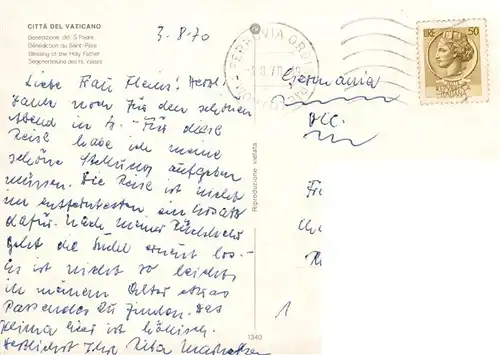 CITTÀ DEL VATICANO
Benedizione del S. Padre
Bénédiction du Saint-Père
Blessing of the Holy Father
Segenerteilung des hl. Vaters
3.8.70
Liebe Frau Herzl.
Dank noch für den schönen
Abend in Für diese
Reise habe ich meine
schöne Stellung aufgeben
müssen. Die Reise ist nicht
im entferntesten ein Ersatz
dafür. Nach meiner Rückkehr
geht die Suche erneut los.-
Es ist nicht so leicht,
in meinem Alter etwas
Passendes zu finden. Das
Klima hier ist höllisch.
Herzlichst Ihre Rita
Riproduzione vietata
1340
Germania
LIRE 50
1